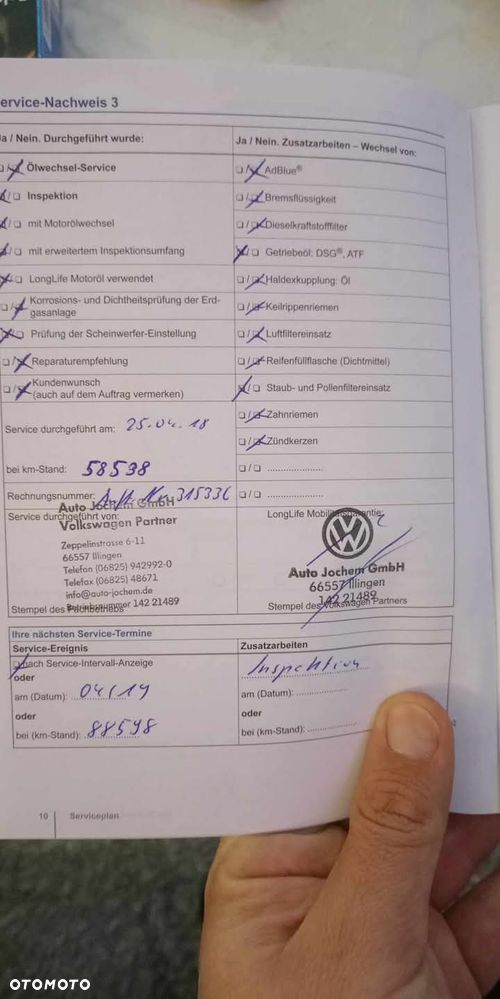 ervice-Nachweis 3
Ja / Nein. Durchgeführt wurde:
Ölwechsel-Service
Inspektion
mit Motorölwechsel
mit erweitertem Inspektionsumfang
LongLife Motoröl verwendet
Korrosions- und Dichtheitsprüfung der Erd-
gasanlage
Prüfung der Scheinwerfer-Einstellung
Reparaturempfehlung
Kundenwunsch
(auch auf dem Auftrag vermerken)
Service durchgeführt am: 25.04.18
bei km-Stand: 58598
Rechnungsnummer: Auft. Nr. 315336
Service durchgeführt von:
Auto Jochem GmbH
Volkswagen Partner
Zeppelinstrasse 6-11
66557 Illingen
Telefon (06825) 942992-0
Telefax (06825) 48671
info@auto-jochem.de
Betriebsnummer 142 21489
Stempel des Fachbetriebs
Ja / Nein. Zusatzarbeiten – Wechsel von:
AdBlue®
Bremsflüssigkeit
Dieselkraftstofffilter
Getriebeöl, DSG®, ATF
Haldexkupplung: Öl
Keilrippenriemen
Luftfiltereinsatz
Reifenfüllflasche (Dichtmittel)
Staub- und Pollenfiltereinsatz
Zahnriemen
Zündkerzen
LongLife Mobilitätsgarantie:
Auto Jochem GmbH
66557 Illingen
142 21489
Stempel des Volkswagen Partners
Ihre nächsten Service-Termine
Service-Ereignis
nach Service-Intervall-Anzeige
oder
am (Datum): 04/19
oder
bei (km-Stand): 88598
Zusatzarbeiten
Inspektion
am (Datum):
oder
bei (km-Stand):
10 Serviceplan
OTOMOTO